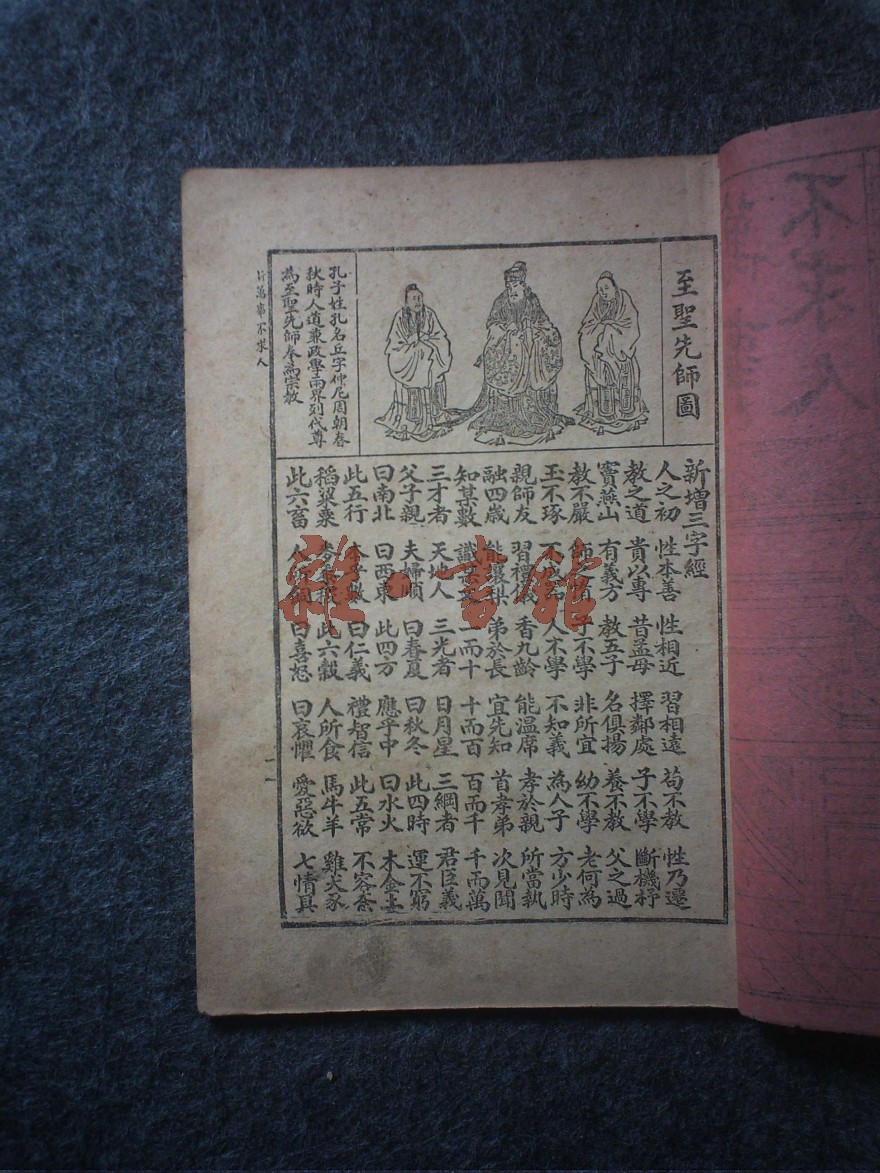 至聖先師圖
孔子姓孔名丘字仲尼周朝春
秋時人道兼政學兩界列代尊
為至聖先師奉為宗教
萬事不求人
新增三字經
人之初 性本善 性相近 習相遠 苟不教 性乃遷
教之道 貴以專 昔孟母 擇鄰處 子不學 斷機杼
竇燕山 有義方 教五子 名俱揚 養不教 父之過
教不嚴 師之惰 子不學 非所宜 幼不學 老何為
玉不琢 不成器 人不學 不知義 為人子 方少時
親師友 習禮儀 香九齡 能溫席 孝於親 所當執
融四歲 能讓梨 弟於長 宜先知 首孝弟 次見聞
知某數 識某文 一而十 十而百 百而千 千而萬
三才者 天地人 三光者 日月星 三綱者 君臣義
父子親 夫婦順 曰春夏 曰秋冬 此四時 運不窮
曰南北 曰西東 此四方 應乎中 曰水火 木金土
此五行 本乎數 曰仁義 禮智信 此五常 不容紊
稻粱粟 此六穀 人所食 馬牛羊 雞犬豕
此六畜 人所飼 曰喜怒 曰哀懼 愛惡欲 七情具
雜·書館
不求人